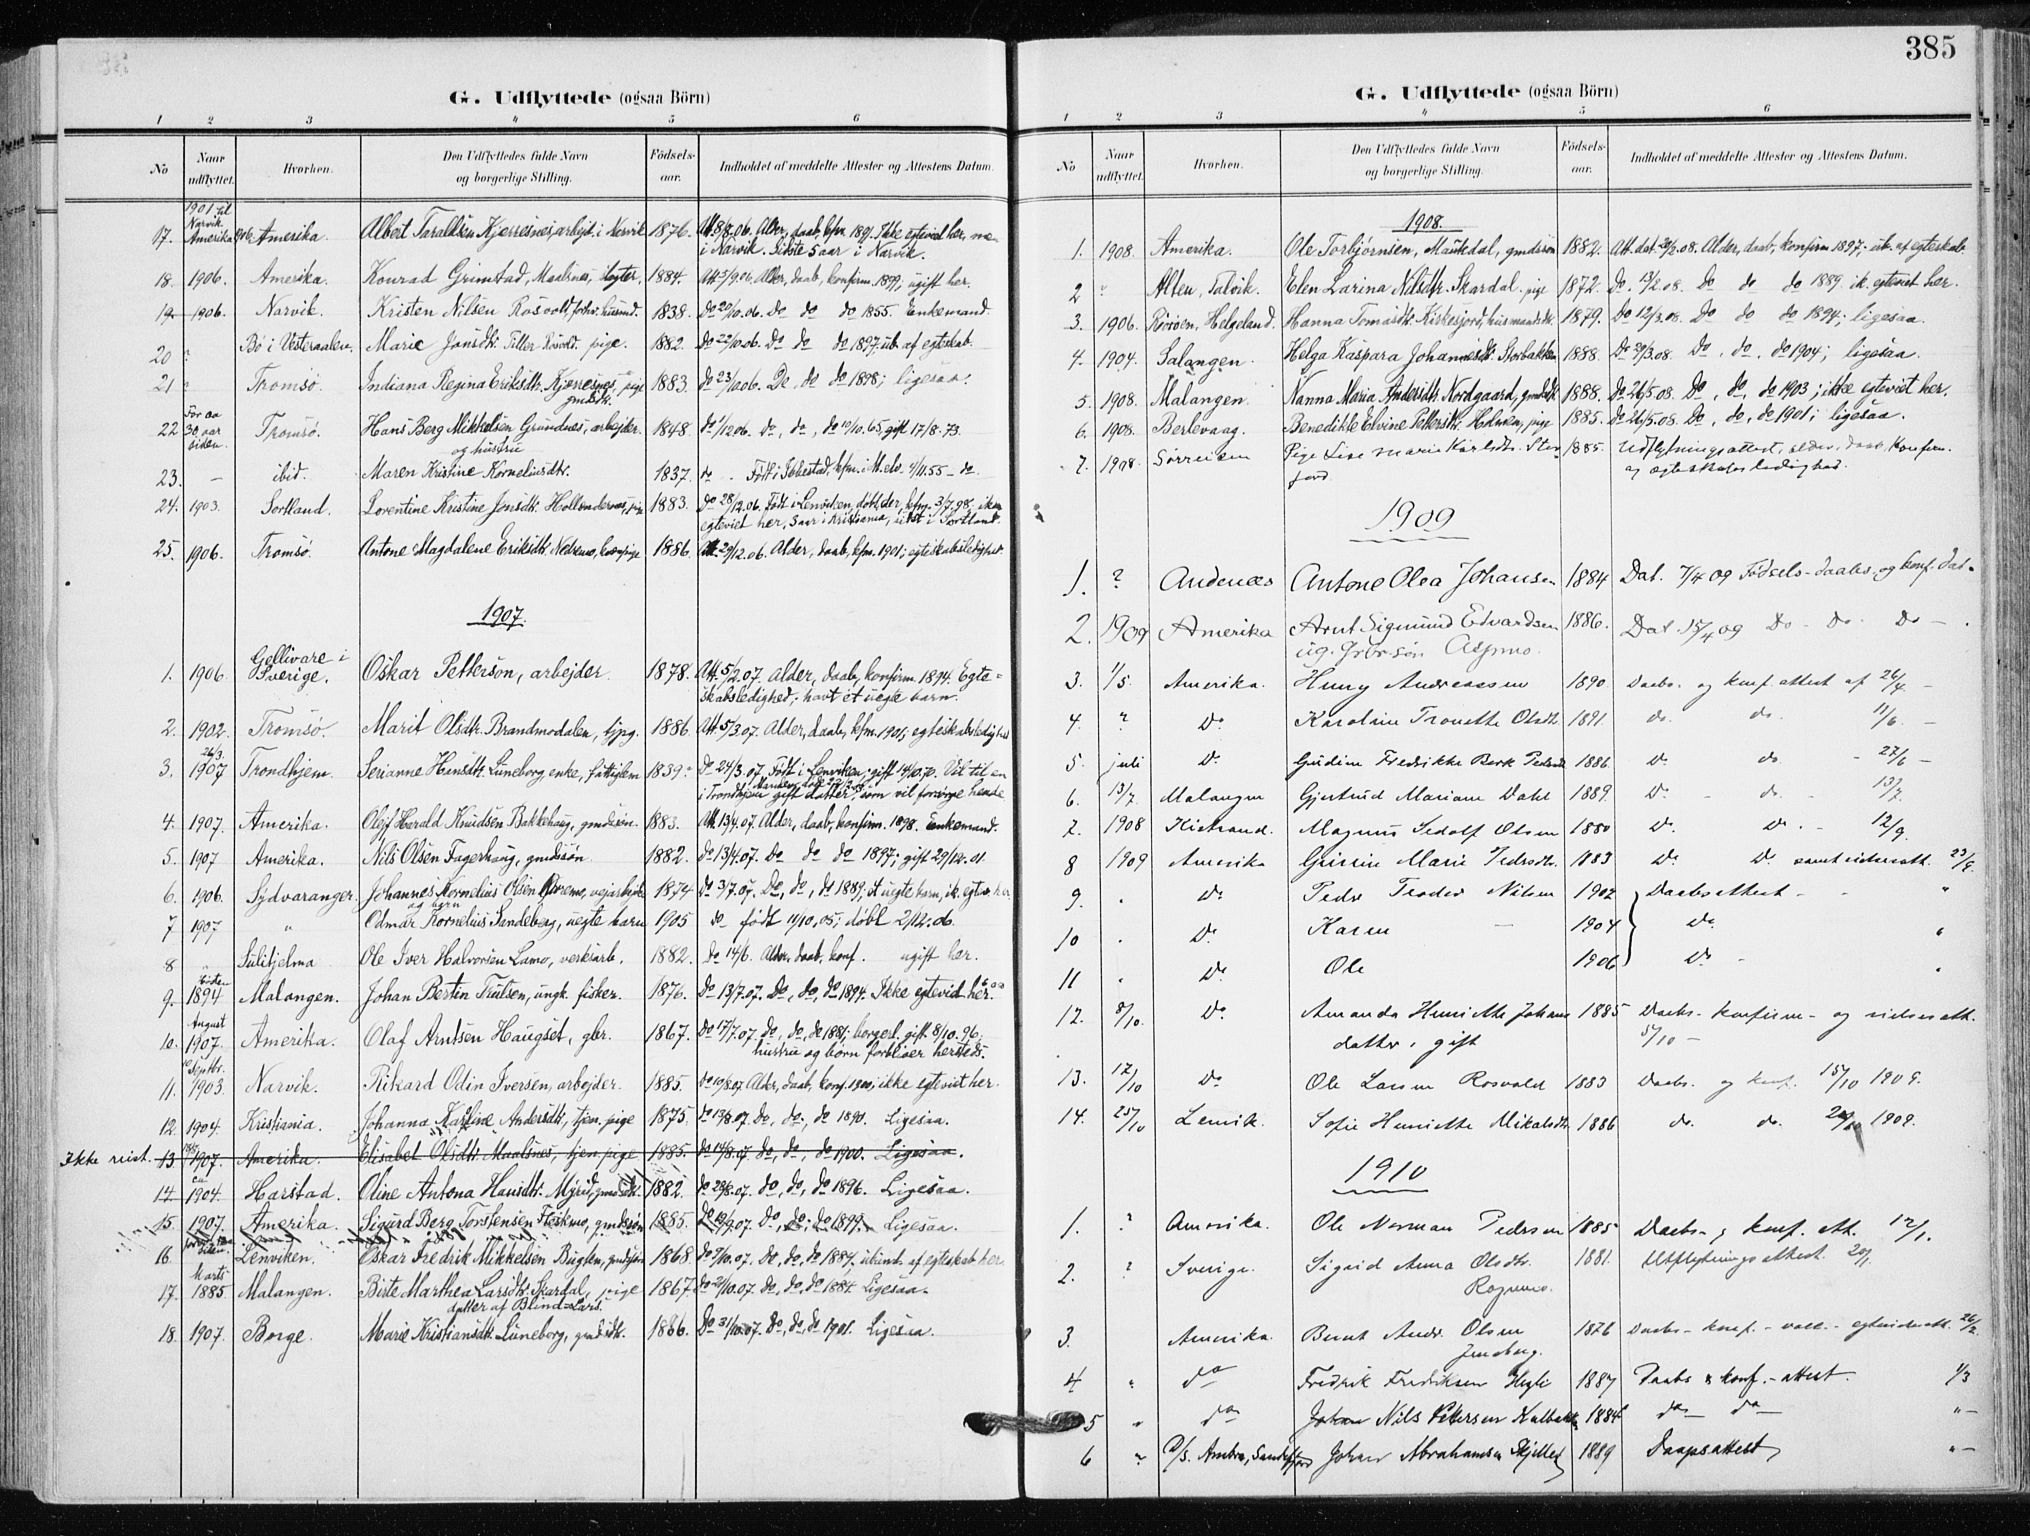 G. Udflyttede (ogsaa Börn)
1 2 3 4 5 6
No Naar udflyttet. Hvorhen. Den Udflyttedes fulde Navn og borgerlige Stilling. Födsels-aar. Indholdet af meddelte Attester og Attestens Datum.
1901 til Narvik
17. Amerika 1906 Amerika. Albert Taraldsen Kjerresnes, arbejd. i Narvik 1876. Att. 8/8.06. Alder, daab, kfm. 1891. Ikke egteviet her, men
i Narvik. Sidste 5 aar i Narvik.
18. 1906. Amerika. Konrad Grimstad, Maalsnes, 1884. Att. 5/9.06. Alder, daab, konfirm. 1899; ugift her.
19. 1906. Narvik. Kristen Nilsen Rosvold, forhv. husmd. 1838. Do 22/10.06. Do do do 1855. Enkemand.
20 " Bø i Vesteraalen. Marie Jonsdtr. Tiller Rosvold, pige. 1882. Do 22/10.06. Do do do 1897. ub. af egteskab.
21 " Tromsø. Indiana Regina Eriksdtr. Kjerresnes, pige 1883. do 23/10.06. Do, do do 1898; ligesaa.
gmdsdtr.
22 For ca 30 aar siden. Tromsø. Hans Berg Mikkelsen Grundnes, arbejder. 1848. do 1/12.06. do, do, do 10/10.65, gift 17/8.73.
og hustru
23. – ibid. Maren Kristine Korneliusdtr. 1837. do Født i Ibbestad, kfm. i M.elv. 4/11.55 – do –
24. 1903. Sortland. Lorentine Kristine Jensdtr. Hollendernes, pige 1883. Do 28/12.06. Født i Lenviken, døbt der, kfm. 3/7.98, ikke
egteviet her, 5 aar i Kristiania, sidst i Sortland.
25. 1906. Tromsø. Antone Magdalene Eriksdtr. Nedremo, 1886. Att. 29/12.06. Alder, daab, kfm. 1901; egteskabsledighed.
1907.
Gellivare i
1. 1906. Sverige. Oskar Petterson, arbejder. 1878. Att. 5/2.07. Alder, daab, konfirm. 1894. Egte=
skabsledighed; havt et uegte barn.
2. 1902. Tromsø. Marit Olsdtr. Brandmodalen, tjpg. 1886. Att. 5/3.07. Alder, daab, kfm. 1901; egteskabsledighed
26/3
3. 1907 Trondhjem. Serianne Hansdtr. Luneborg, enke, fattiglem 1839. Do 24/3.07. Født i Lenviken; gift 14/10.70. Vil til en
i Trondhjem gift datter, som vil forsørge hende
4. 1907. Amerika. Olaf Harald Knudsen Bakkehaug, gmdssøn. 1883. Att. 13/4.07. Alder, daab, konfirm. 1898. Enkemand.
5. 1907 Amerika. Nils Olsen Fagerhaug, gmdssøn 1882. Do 13/4.07. Do do do 1897; gift 29/12.01.
6. 1906. Sydvaranger. Johannes Kornelius Olsen, vejarbejder 1874 Do 3/7.07. Do, do, do 1889; et uegte barn, ik. egtev. her.
og barn
7 1907 " Odmar Kornelius Sandeberg, uegte barn 1905 do født 11/10.05; døbt 2/12.06.
8 " Sulitjelma Ole Iver Halvorsen Lamo, verksarb. 1882. Do 14/6. Alder, daab, konf. ugift her.
siden
9. 1894 Malangen. Johan Berten Trulsen, ungk. fisker. 1876. Do 13/7.07. Do, do, do 1894. Ikke egteviet her.
August
10. 1907. Amerika. Olaf Arntsen Haugset, gbr. 1867. Do 17/7.07. do, do, do 1881; borgerl. gift 8/10.96.
hustru og børn forbliver hersteds.
Septbr.
11. 1903. Narvik. Rikard Odin Iversen, arbejder. 1885. do 10/8.07 Alder, daab, konf. 1900; ikke egteviet her.
12. 1904. Kristiania. Johanna Karline Andersdtr. tjen. pige 1875. do 13/8.07. do, do, do 1890. Ligesaa.
Ikke reist. 13. 1907. Amerika. Elisabet Olsdtr. Maalsnes, tjen. pige 1885. do 14/8.07. do, do, do 1900. Ligesaa.
ca
14. 1904. Harstad. Oline Antona Hansdtr. Myrid, gmdsdtr. 1882. do 29/8.07. do, do, do 1896. Ligesaa.
15. 1907. Amerika. Sigurd Berg Torstensen Fleskmo, gmdssøn 1885. do 19/9.07. do, do, do 1899. Ligesaa.
16. siden Lenviken. Oskar Fredrik Mikkelsen Bugten, gmdssøn 1868. do 7/10.07. Do, do, do 1884, ubund. af egteskab her.
Marts
17. 1885. Malangen. Birte Marthea Larsdtr. Skardal, pige 1867. do 21/10.07. do, do, do 1884. Ligesaa.
datter af Blind-Lars.
18. 1907. Borge. Marie Kristiansdtr. Luneborg, gmdsdtr. 1886. Do 31/10.07. do, do, do 1901. Ligesaa.
385
G. Udflyttede (ogsaa Börn)
1 2 3 4 5 6
No Naar udflyttet. Hvorhen. Den Udflyttedes fulde Navn og borgerlige Stilling. Födsels-aar. Indholdet af meddelte Attester og Attestens Datum.
1908.
1. 1908. Amerika. Ole Torbjørnsen, Maukdal, gmdssøn 1882. Att. dat. 29/2.08. Alder, daab, konfirm 1897; ub. af egteskab.
2 " Alten, Talvik. Elen Larina Nilsdtr. Skardal, pige 1872. Do. 13/2.08. Do do do 1889. ik. egteviet her.
3. 1906. Rörøen, Helgeland. Hanna Tomasdtr. Kirkesjord, husmandsdtr. 1879. Do 12/3.08. Do do do 1894; ligesaa.
4. 1904. Salangen. Helga Kaspara Johannesdtr. Storbakken 1888. Do 30/3.08. Do, do, do 1904; ligesaa.
5. 1908. Malangen. Nanna Maria Andersdtr. Nordgaard, gmdsdtr. 1888. Do. 26/5.08. Do, do, do 1903; ikke egteviet her.
6. 1908. Berlevaag. Benedikte Elvine Pettersdtr. Holmen, pige 1885. Do. 26/5.08. Do, do, do 1901; ligesaa.
7. 1908. Sørreisen Pige Lise Marie Karlsdtr. Stor 1885. Udflytningsattest, alder, daab, konfirm.
fjord. og ægteskabsledighed.
1909
1. ? Andenæs Antone Olea Johansen 1884 Dat. 7/4 09 Fødsels- daabs- og konf. dat.
2. 1909 Amerika Arnt Sigmund Edvardsen 1886. Dat 15/4 09 Do - Do - Do -
ug. gbr. søn Aspmo.
3. 1/5. Amerika. Huny Andreassen 1890 Daabs- og konf. attest af 26/4. –
4. ? Do Karoline Tronette Olsdtr. 1891. do. do. 11/6. –
5. juli Do Gudine Fredrikke Berk Pedersdtr 1886 Do do. 27/6 –
6. 13/7. Malangen Gjertrud Mariane Dahl 1889. Do - do. - 13/7.
7. 1908 Kistrand. Magnus Sedolf Olsen 1880 Do Do. - 12/9.
8 1909 Amerika Marie Pedersdtr. 1883 Do Do samt vielsesatt. 23/9.
9. " Do Peder Teodor Nilsen 1902 Daabsattest - - "
10 . Do Karen – 1904 Do "
11 . Do Ole 1906 Do - "
12. 8/10. Do Amanda Henriette Johans 1885 Daabs- konfirm- og vielsesatt.
datter, gift 5/10 –
13. 12/10 Do Ole Larsen Rosvold 1883 Daabs. og konf. 15/10 1909.
14. 25/10 Lenvik. Sofie Henriette Mikalsdtr. 1886 do. do. 20/10 1909.
1910
1. ? Amerika. Ole Norman Pedersen 1885 Daabs- & konf. att. 12/1.
2. ? Sverige. Sigrid Anna Olsdtr. 1881. Utflytningsattest 20/1.
Rognmo.
3. Amerika Bernt Andr. Olsen 1876 Daabs- konf. - vakc. - 26/2.
4 " do Fredrik Fredriksen Hegli 1887 Daabs & konf.-attest. 1/3
5 " do Johan Nils Petersen Kalbakk 1884 do – do – " –
6 " D/S. Ambra, Sandefjord Johan Abrahamsen 1889 Daapsattest " –